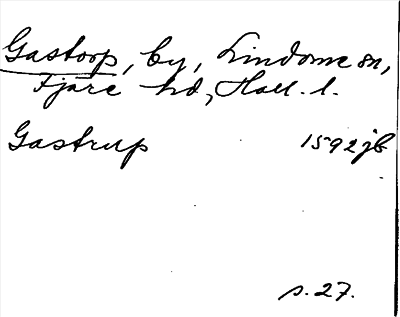 Gastorp, by, Lindome sn,
Fjäre hd, Hall. l.
Gastrup 1592 jb
s. 27.